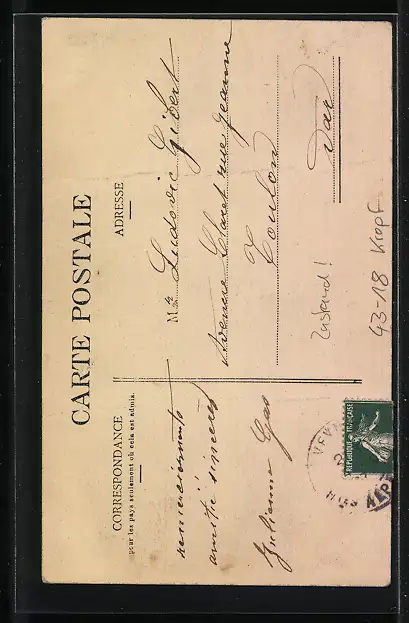 CARTE POSTALE
CORRESPONDANCE
pour les pays seulement où cela est admis.
ADRESSE
remerciements
amitié sincères
Julienne Gas
Mr Ludovic Gibert
Avenue Claret rue Jeanne
Toulon
Var
Zustand!
43-18 Kropf
REPUBLIQUE FRANÇAISE